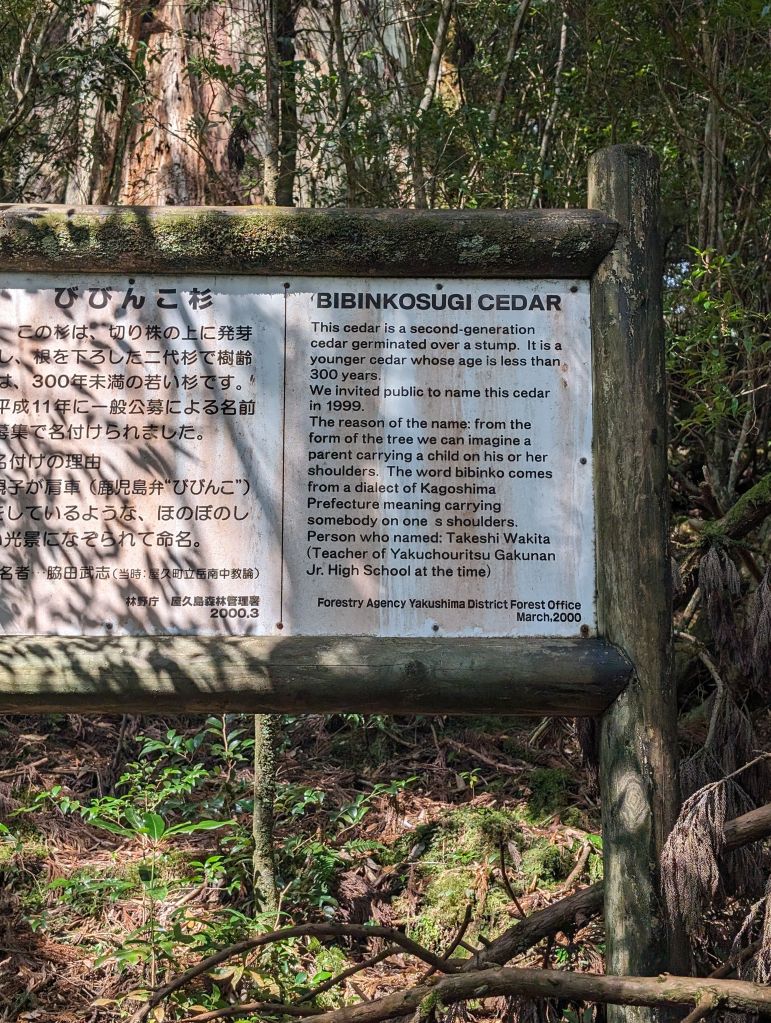 びびんこ杉
この杉は、切り株の上に発芽
し、根を下ろした二代杉で樹齢
は、300年未満の若い杉です。
平成11年に一般公募による名前
募集で名付けられました。
名付けの理由
親子が肩車（鹿児島弁“びびんこ”）
をしているような、ほのぼのし
い光景になぞられて命名。
名者…脇田武志(当時：屋久町立岳南中教諭)
林野庁 屋久島森林管理署
2000.3
BIBINKOSUGI CEDAR
This cedar is a second-generation
cedar germinated over a stump. It is a
younger cedar whose age is less than
300 years.
We invited public to name this cedar
in 1999.
The reason of the name: from the
form of the tree we can imagine a
parent carrying a child on his or her
shoulders. The word bibinko comes
from a dialect of Kagoshima
Prefecture meaning carrying
somebody on one s shoulders.
Person who named: Takeshi Wakita
(Teacher of Yakuchouritsu Gakunan
Jr. High School at the time)
Forestry Agency Yakushima District Forest Office
March,2000